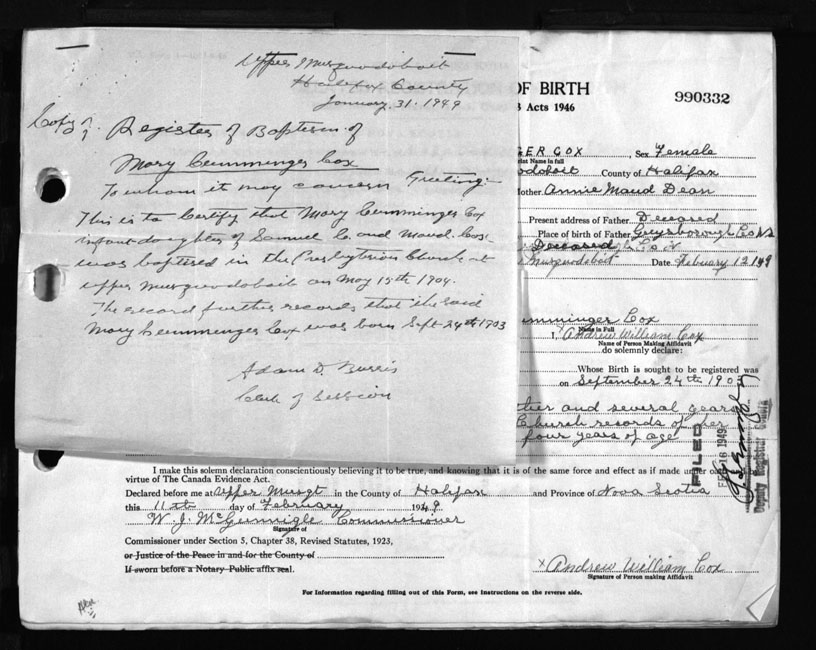 Upper Musquodoboit
Halifax County
January. 31. 1949
Copy of Register of Baptism of
Mary Cumminger Cox
To whom it may concern Greeting-
This is to Certify that Mary Cumminger Cox
infant daughter of Samuel C. and Maud. Cox-
was baptised in the Presbyterian Church at
upper Musquodoboit on May 15th 1904.
The record further records that the said
Mary Cumminger Cox was born Sept-24th 1903
Adam D. Burris
Clerk of Session
OF BIRTH
Acts 1946
990332
GER COX, Sex Female
Print Name in full
odoboit County of Halifax
Mother Annie Maud Dean
Present address of Father Deceased
Place of birth of Father Guysborough Co N S
Deceased
Musquodoboit Date February 12 1949
umminger Cox
Name in Full
I, Andrew William Cox
Name of Person Making Affidavit
do solemnly declare:
Whose Birth is sought to be registered was
on September 24th 1903
and several years
Church records of her
four years of age
FILED
FEB 16 1949
Deputy Registrar
I make this solemn declaration conscientiously believing it to be true, and knowing that it is of the same force and effect as if made under oath
virtue of The Canada Evidence Act.
Declared before me at Upper Musqt in the County of Halifax and Province of Nova Scotia
this 11th day of February 1949
W. J. McGunnigle Commissioner
Signature of
Commissioner under Section 5, Chapter 38, Revised Statutes, 1923,
or Justice of the Peace in and for the County of
If sworn before a Notary Public affix seal.
x Andrew William Cox
Signature of Person making Affidavit
For Information regarding filling out of this Form, see Instructions on the reverse side.